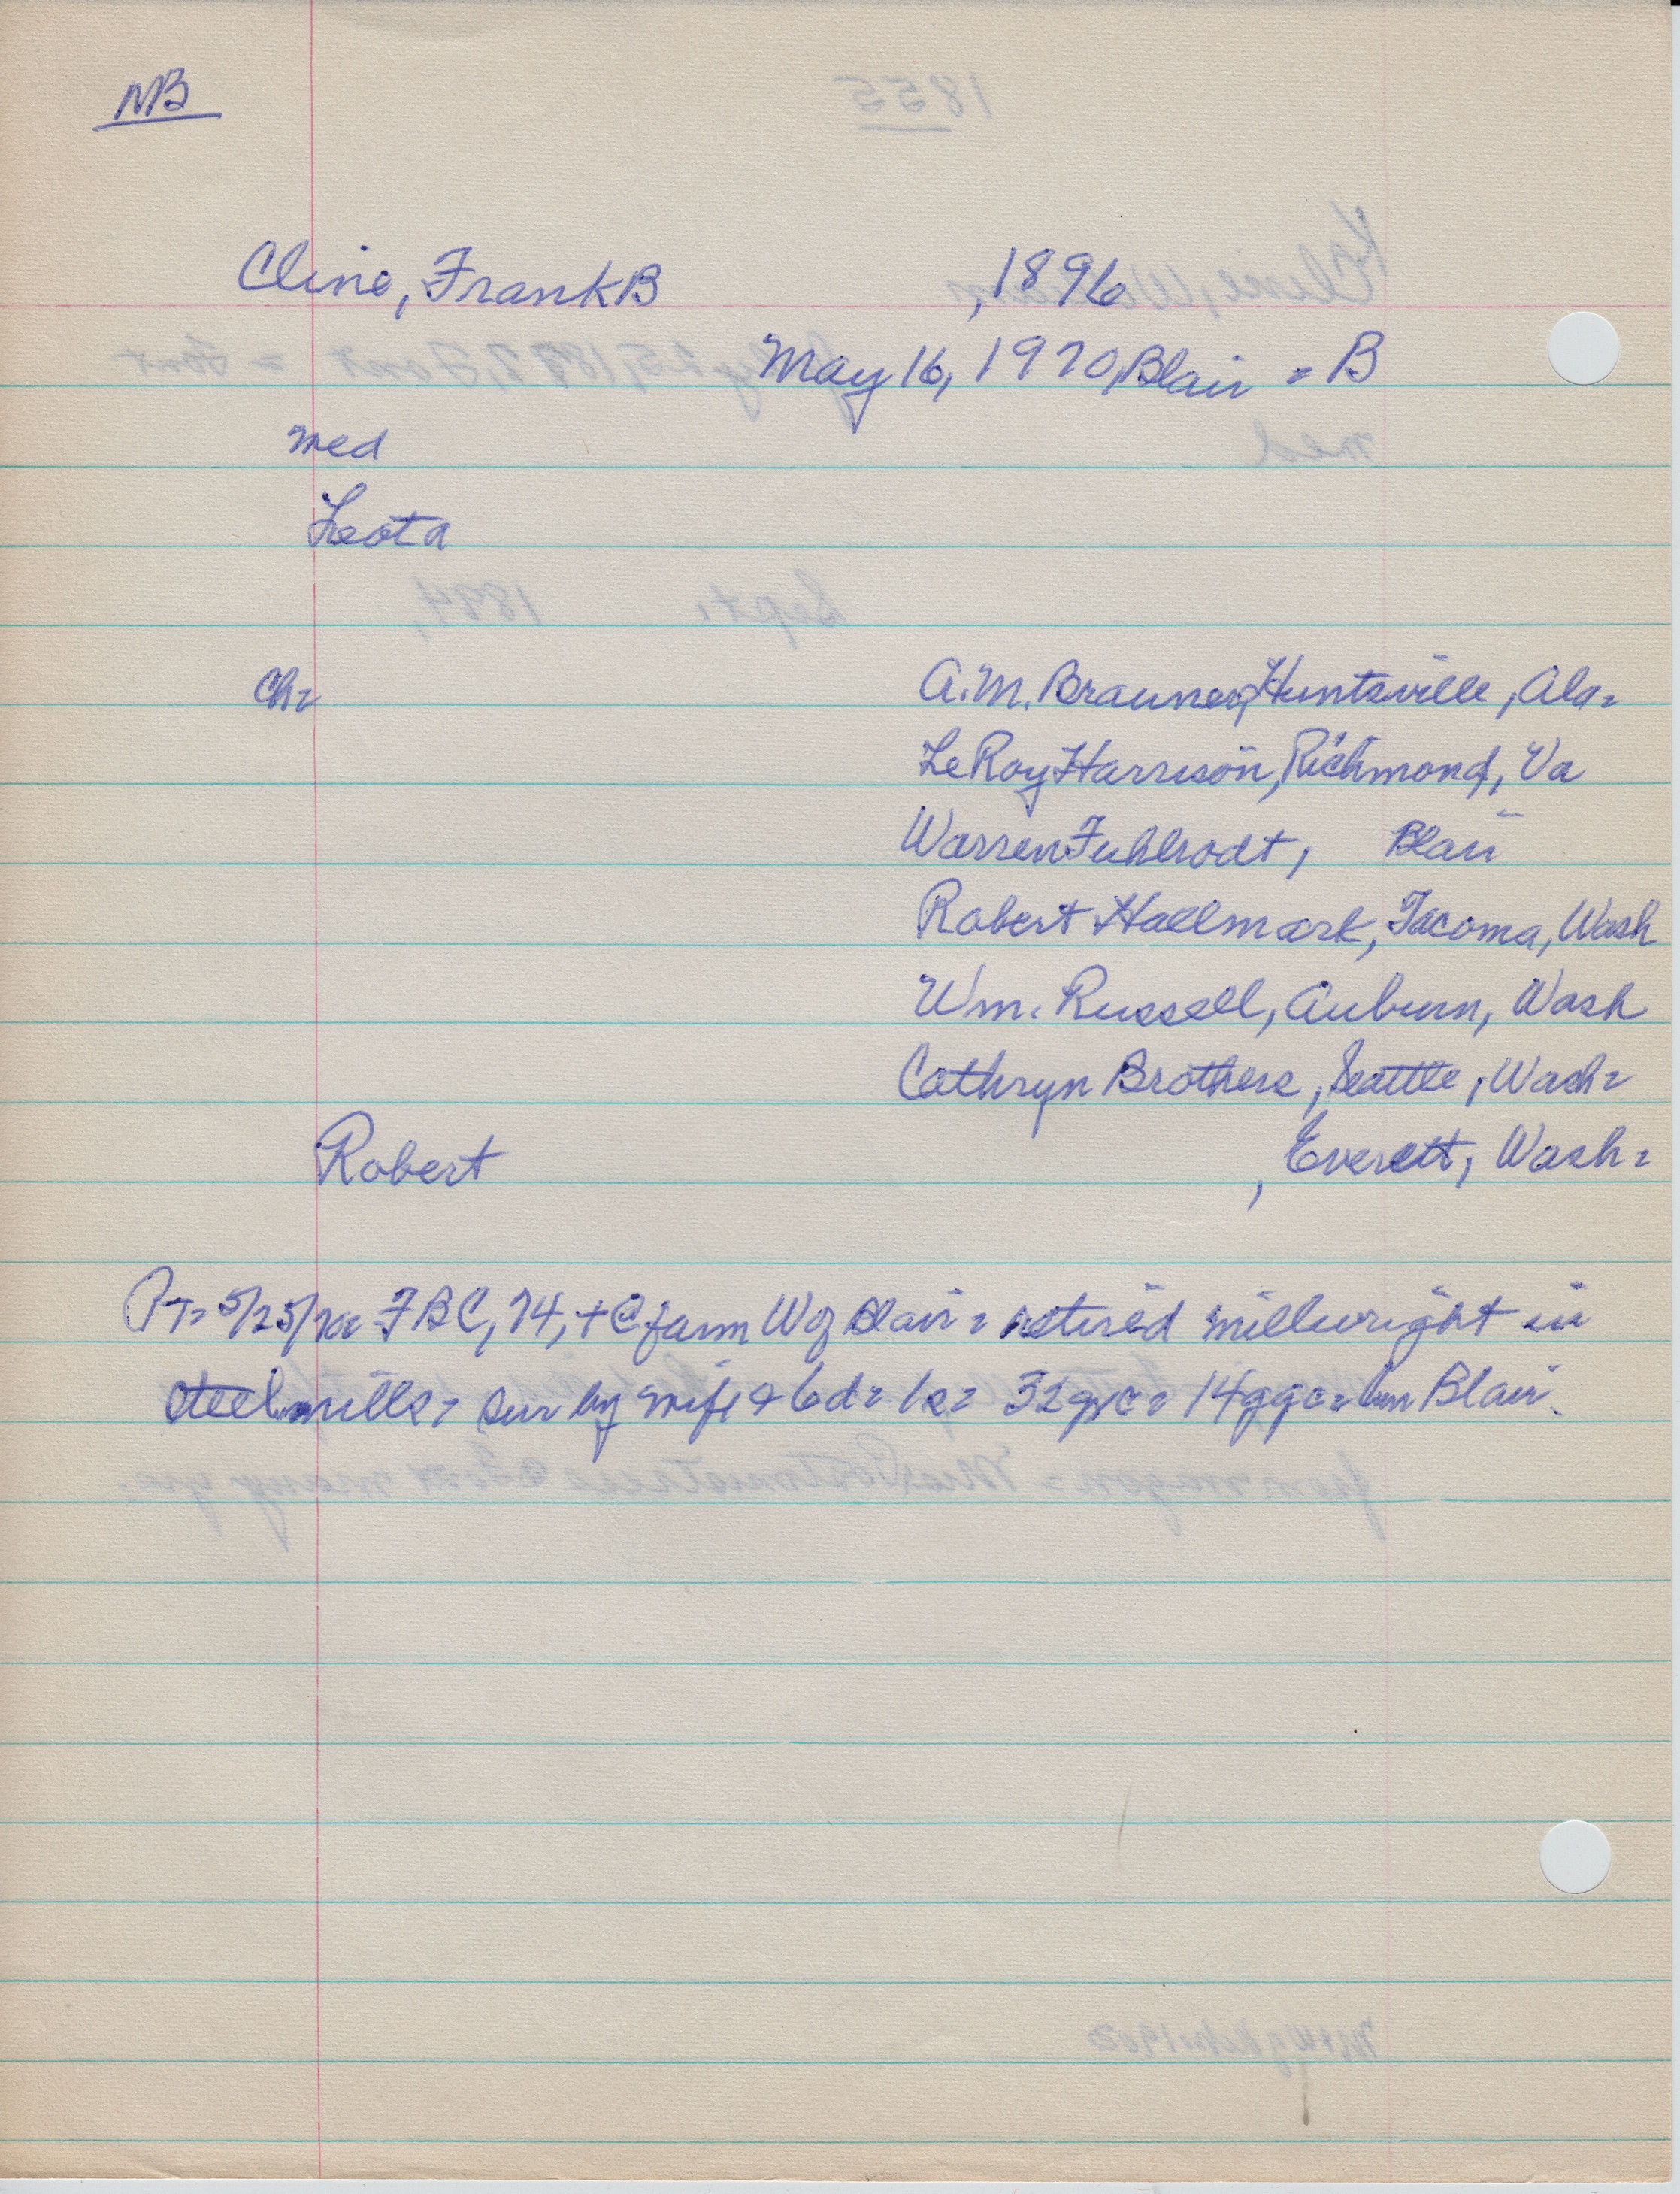 NB
Cline, Frank B , 1896
May 16, 1970, Blair = B
med
Leota
Ch= A. M. Brauner, Huntsville, Ala=
LeRoy Harrison, Richmond, Va
Warren Fuhlrodt, Blair
Robert Hallmark, Tacoma, Wash
Wm. Russell, Auburn, Wash
Cathryn Brothers, Seattle, Wash=
Robert , Everett, Wash=
PT= 5/25/70= FBC, 74, + @ farm W of Blair = retired millwright in
steel mills= sur by wife & 6d= 1s= 32gc= 14ggc= bur Blair.